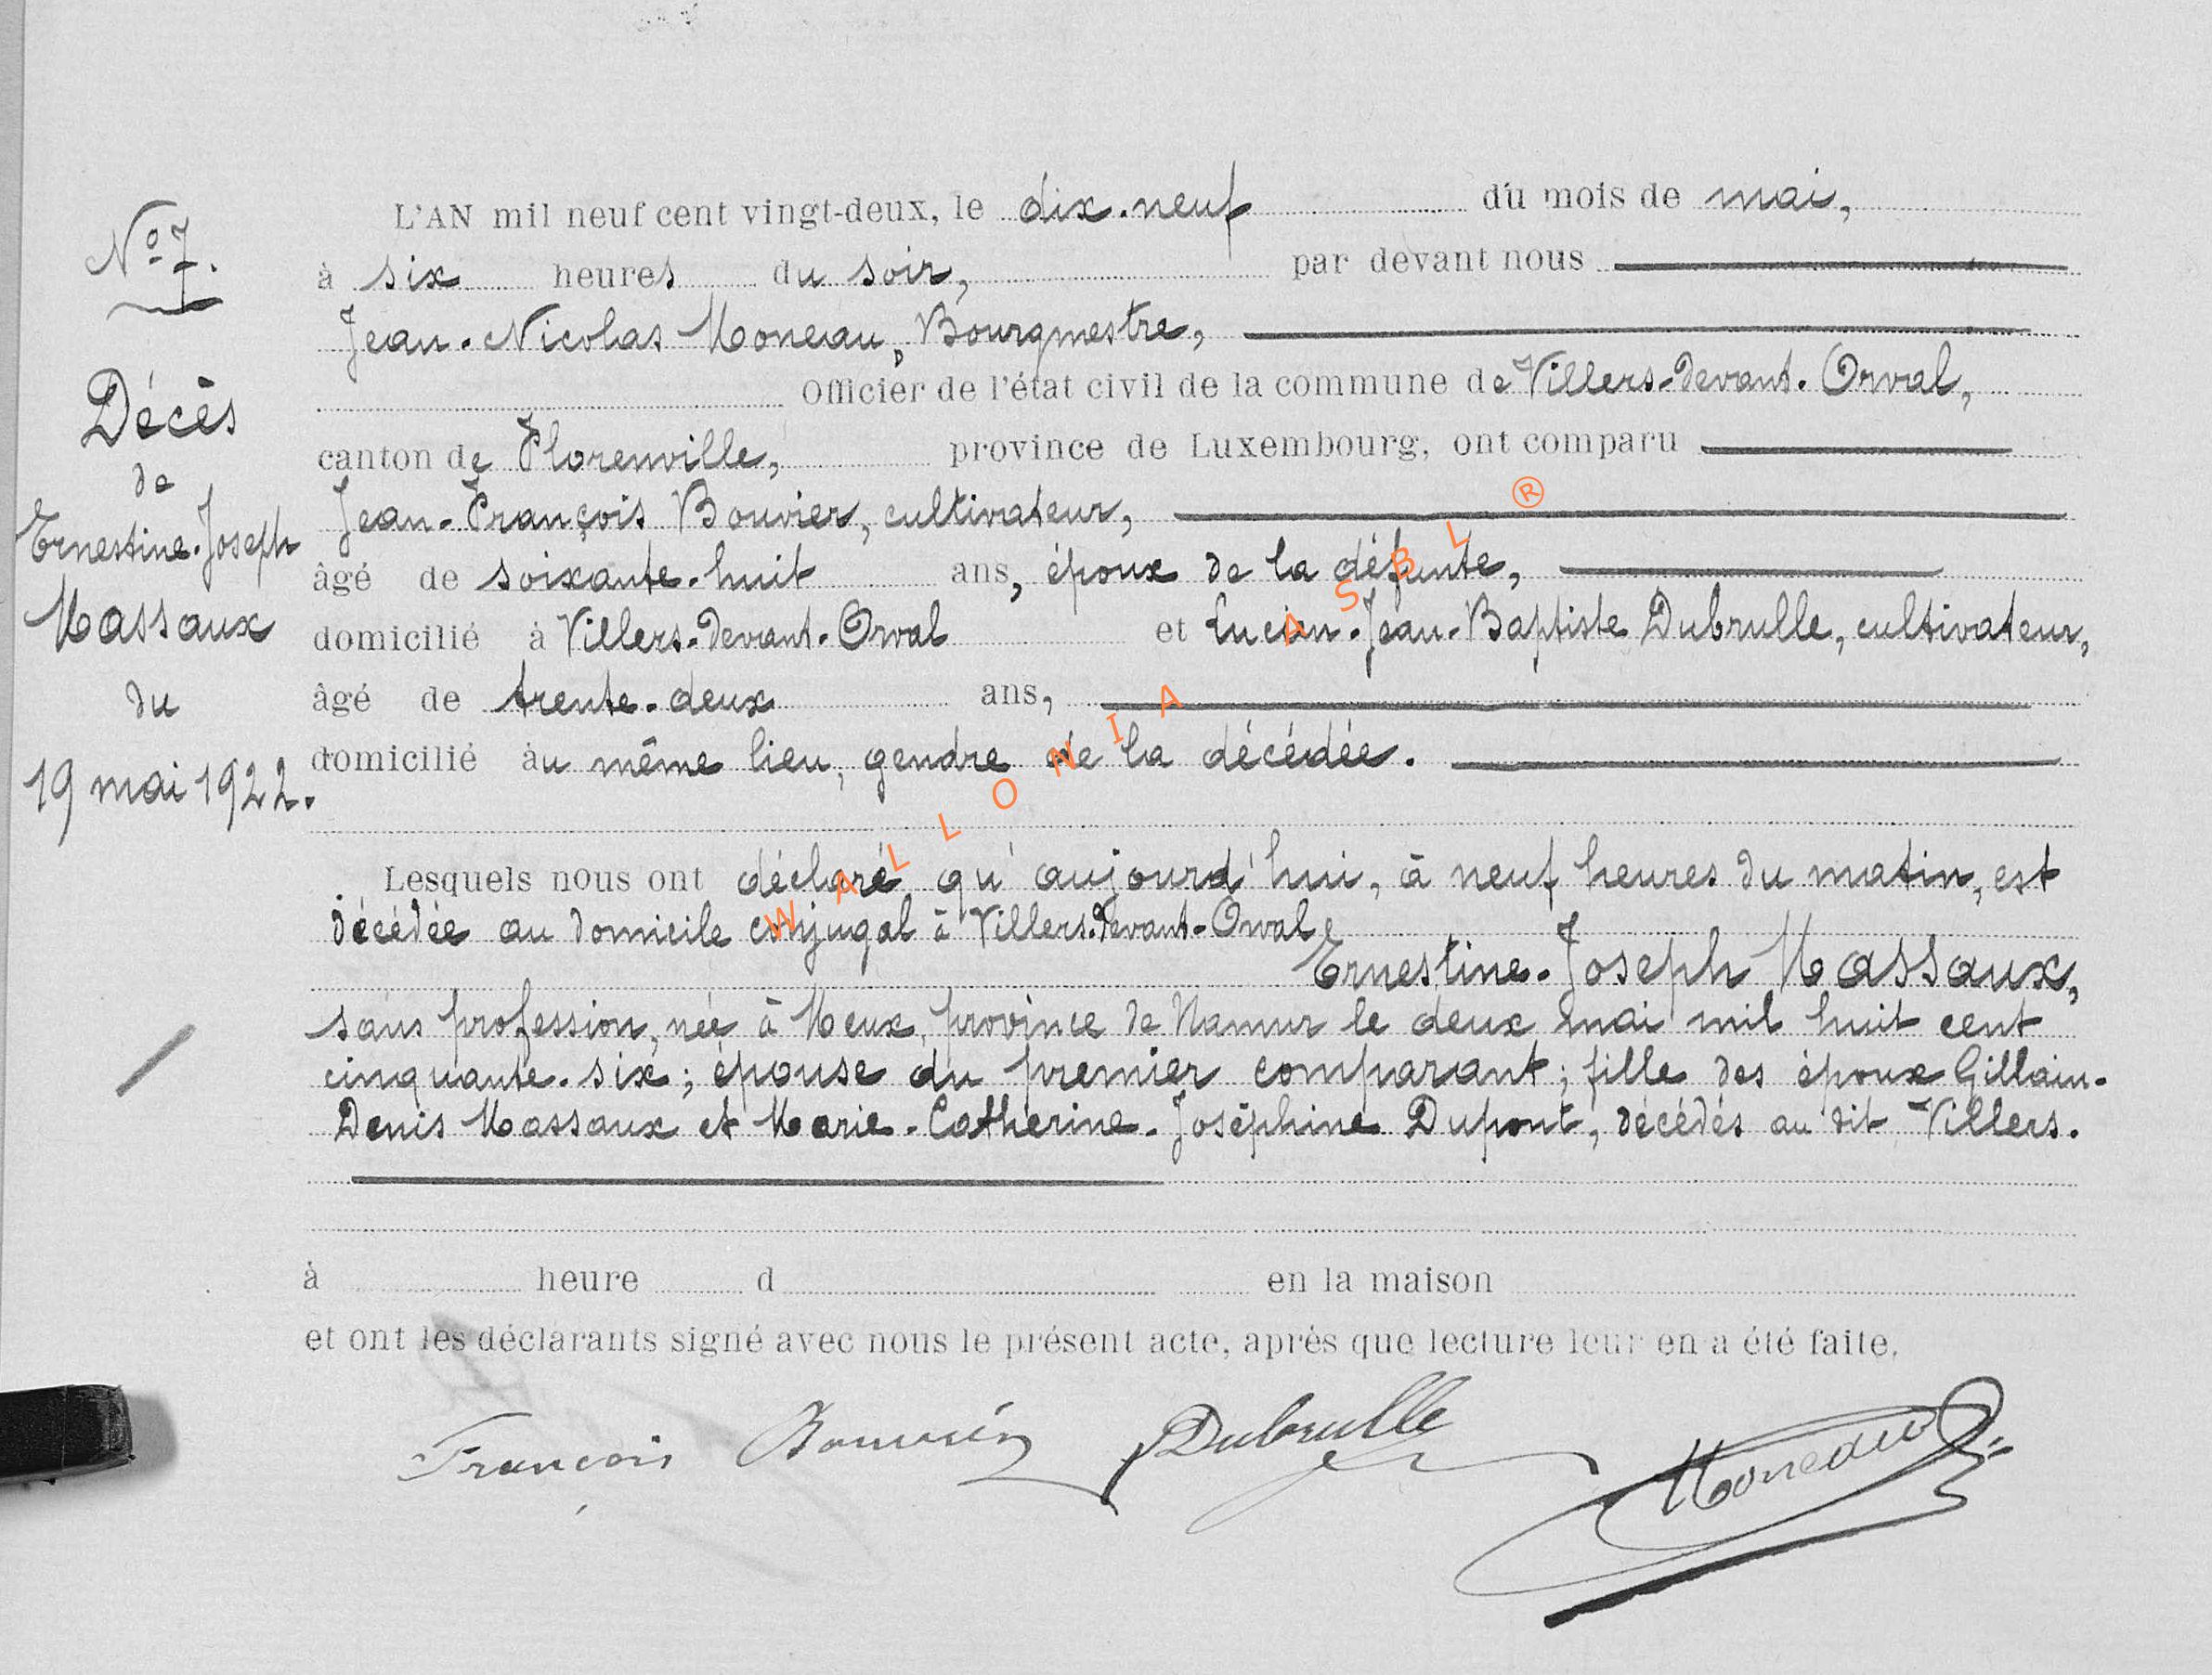 N° 7.
Décès
de
Ernestine-Joseph
Massaux
du
19 mai 1922.
L'AN mil neuf cent vingt-deux, le dix-neuf du mois de mai,
à six heures du soir, par devant nous
Jean-Nicolas Moneau, Bourgmestre,
Officier de l'état civil de la commune de Villers-devant-Orval,
canton de Florenville, province de Luxembourg, ont comparu
Jean-François Bouvier, cultivateur,
âgé de soixante-huit ans, époux de la défunte,
domicilié à Villers-devant-Orval et Lucien-Jean-Baptiste Dubrulle, cultivateur,
âgé de trente-deux ans,
domicilié au même lieu, gendre de la décédée.
Lesquels nous ont déclaré qu'aujourd'hui, à neuf heures du matin, est
décédée au domicile conjugal à Villers-devant-Orval
Ernestine-Joseph Massaux,
sans profession, née à Meux, province de Namur le deux mai mil huit cent
cinquante-six; épouse du premier comparant; fille des époux Gillain-
Denis Massaux et Marie-Catherine-Joséphine Dupont, décédés au dit Villers.
à heure d en la maison
et ont les déclarants signé avec nous le présent acte, après que lecture leur en a été faite.
François Bouvier Dubrulle Moneau
WALLONIA ASBL ®